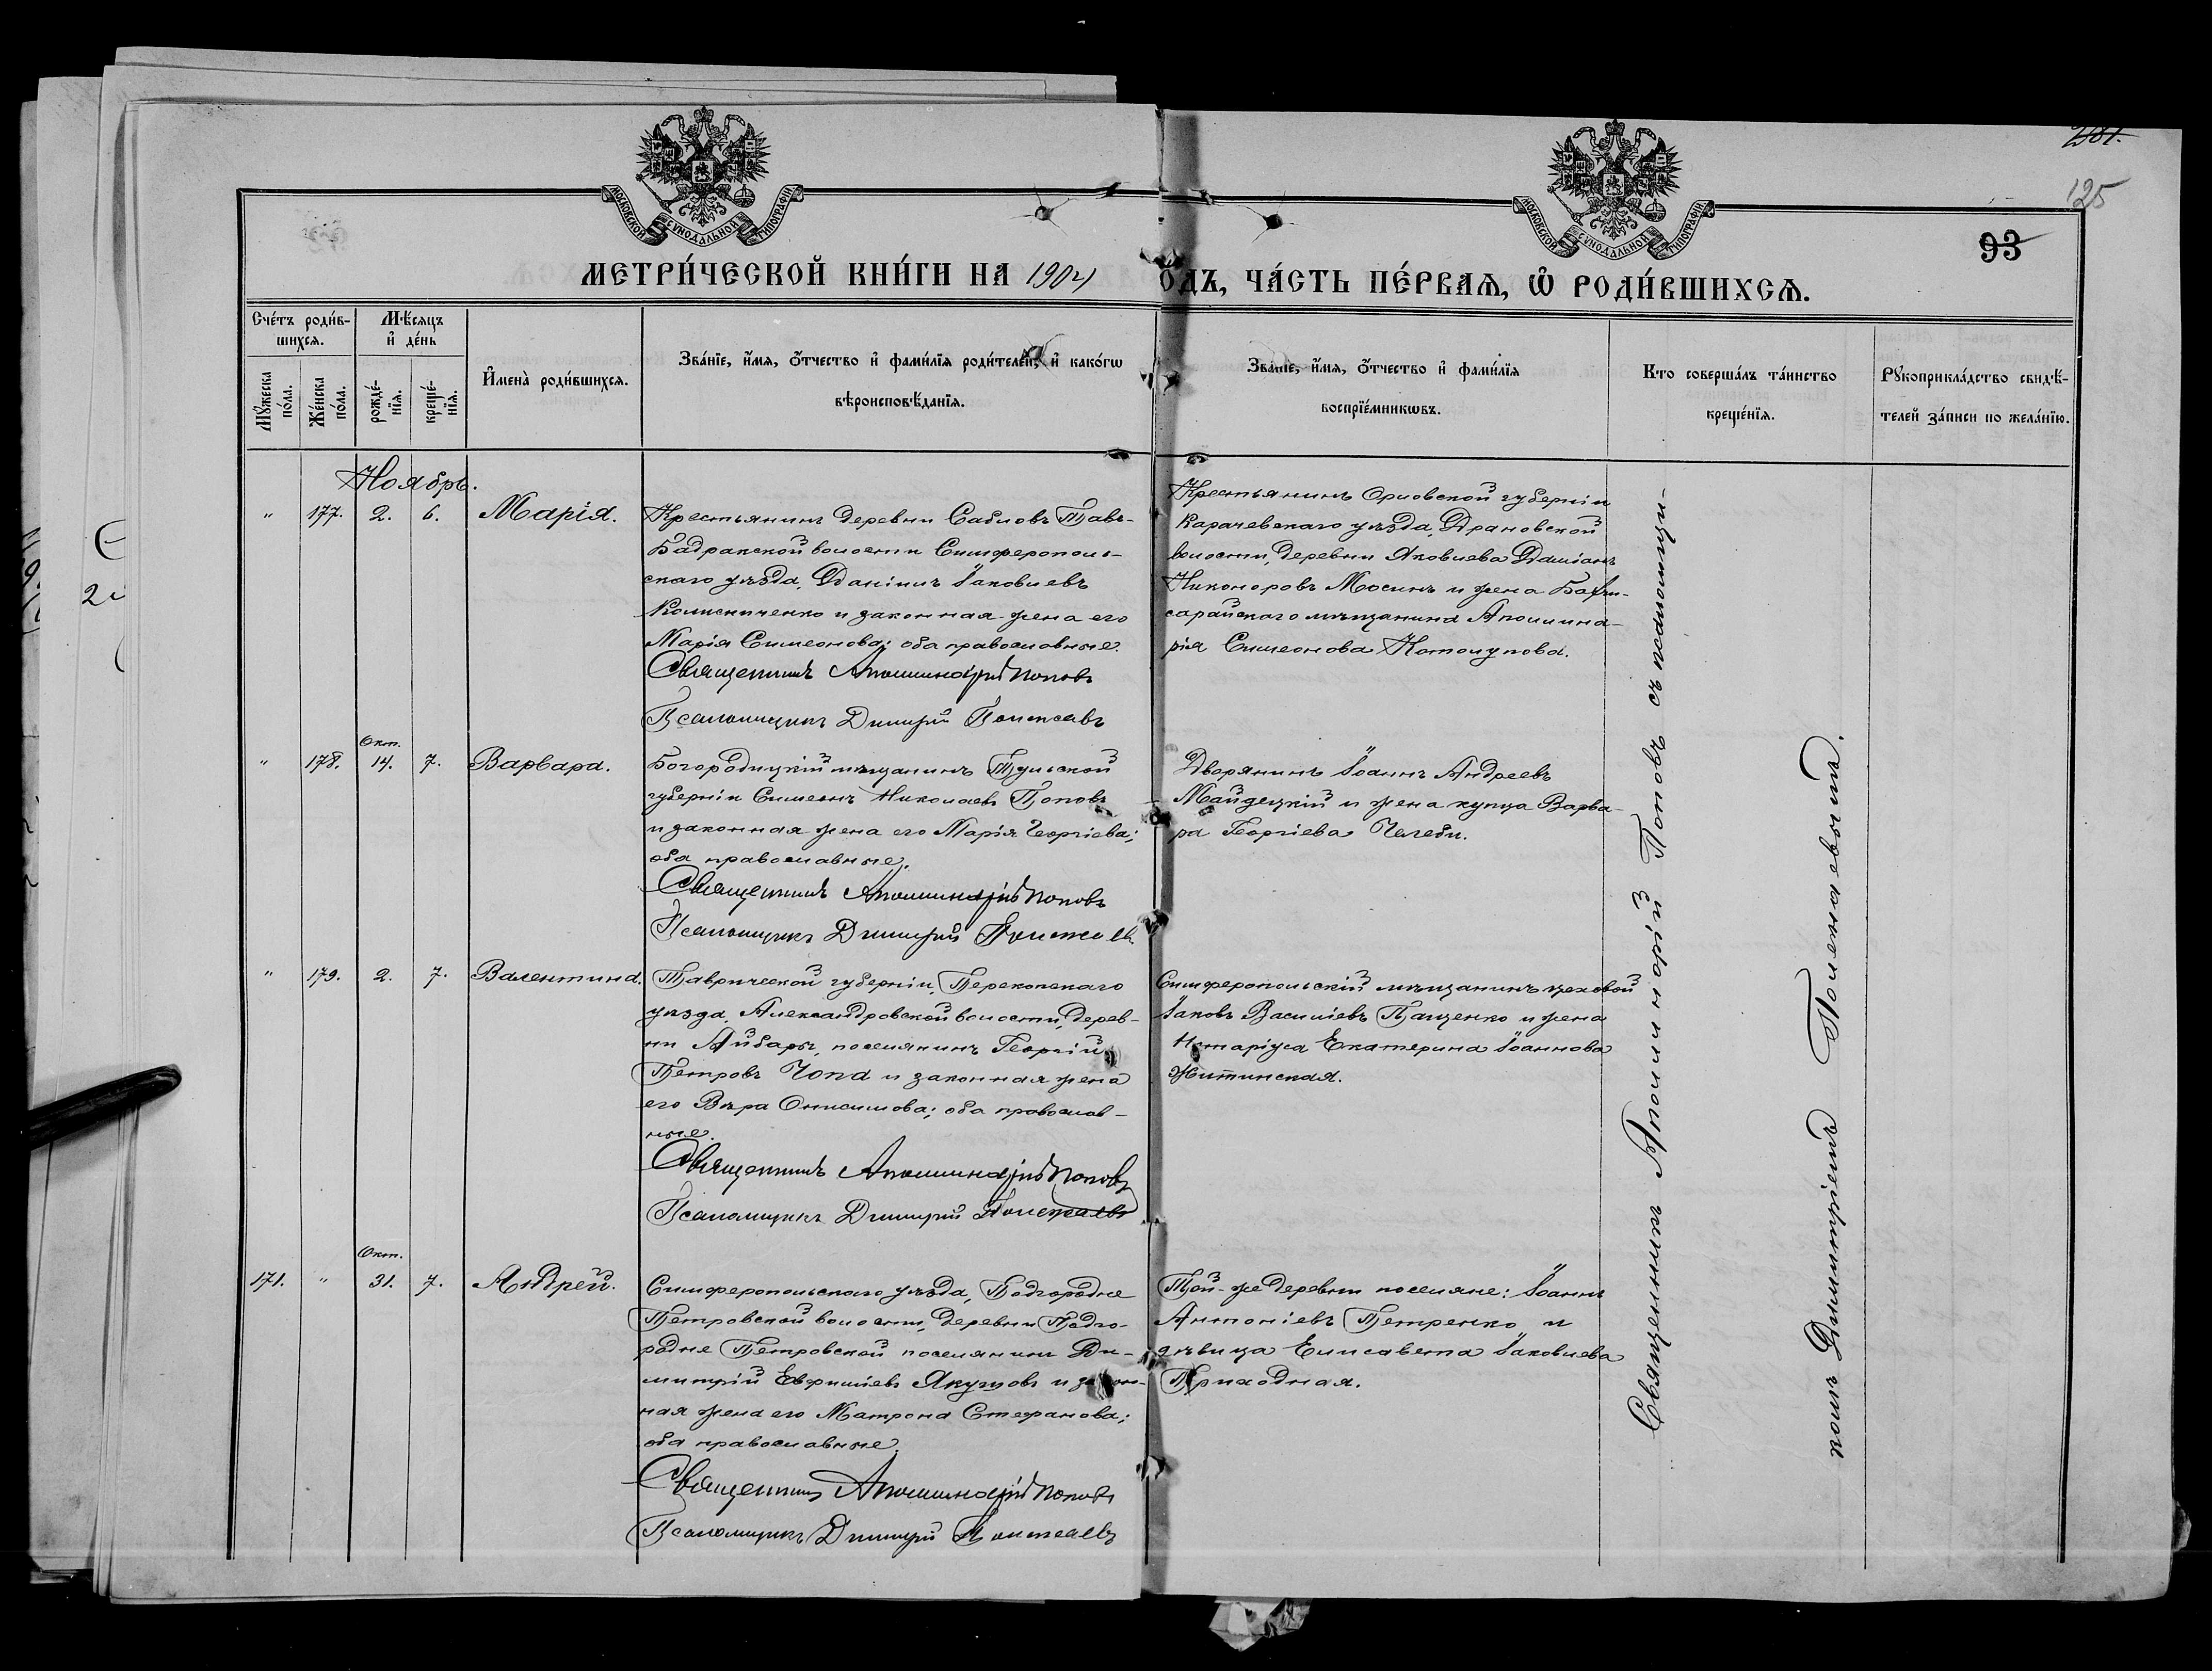 МОСКОВСКОЙ СѴНОДАЛЬНОЙ ТИПОГРАФІИ
МОСКОВСКОЙ СѴНОДАЛЬНОЙ ТИПОГРАФІИ
125
93
МЕТРИ́ЧЕСКОЙ КНИ́ГИ НА 1904 ОДЪ, ЧА́СТЬ ПЕ́РВАѦ, Ѡ РОДИ́ВШИХСѦ.
Сче́тъ роди́в-
шихся.
Мѣ́сяцъ
и де́нь
Мꙋжеска по́ла.
Же́нска по́ла.
рожде́-
нїя.
креще́-
нїя.
Имена̀ роди́вшихся.
Зва́нїе, и́мя, о́тчество и фами́лїя роди́телей, и како́гѡ
вѣроисповѣ́данїя.
Зва́нїе, и́мя, о́тчество и фами́лїя
воспрїе́мникѡвъ.
Кто соверша́лъ та́инство
креще́нїя.
Рꙋкоприкла́дство свидѣ́-
телей за́писи по жела́нїю.
Ноябрь.
" 177. 2. 6. Марія.
Крестьянинъ деревни Саблов Тавъ-
Бадракской волости Симферополь-
скаго уѣзда, Даніилъ Іаковлевъ
Колисниченко и законная жена его
Марія Симеонова; оба православные.
Священникъ Аполлинарій Поповъ
Псаломщикъ Димитрій
Крестьянинъ Орловской губерніи
Карачевскаго уѣзда, Драновской
волости, деревни Яковлева Даміанъ
Никоноровъ Мосинъ и жена Бахчи-
сарайскаго мѣщанина Аполлина-
рія Симеонова
" 178. Окт. 14. 7. Варвара.
Богородицкій мѣщанинъ Тульской
губерніи Симеонъ Николаевъ Поповъ
и законная жена его Марія Георгіева;
оба православные.
Священникъ Аполлинарій Поповъ
Псаломщикъ Димитрій
Дворянинъ Іоаннъ Андреевъ
Майдецкій и жена купца Варва-
ра Георгіева Челеби.
" 179. 2. 7. Валентина.
Таврической губерніи, Перекопскаго
уѣзда, Александровской волости, дерев-
ни Айбары, поселянинъ Георгій
Петровъ Чопа и законная жена
его Вѣра Онисимова; оба православ-
ные.
Священникъ Аполлинарій Поповъ
Псаломщикъ Димитрій
Симферопольскій мѣщанинъ цеховой
Іаковъ Василіевъ Пащенко и жена
Нотаріуса Екатерина Іоаннова
Житинская.
171. " Окт. 31. 7. Андрей.
Симферопольскаго уѣзда, Подгородне
Петровской волости, деревни Подго-
родне Петровской поселянинъ Ди-
митрій Евфиміевъ Якуповъ и закон-
ная жена его Матрона Стефанова;
оба православные.
Священникъ Аполлинарій Поповъ
Псаломщикъ Димитрій
Той-же деревни поселяне: Іоаннъ
Антоніевъ Петренко и
дѣвица Елисавета Іаковлева
Приходная.
Священникъ Аполлинарій Поповъ съ псаломщи-
комъ Димитріемъ